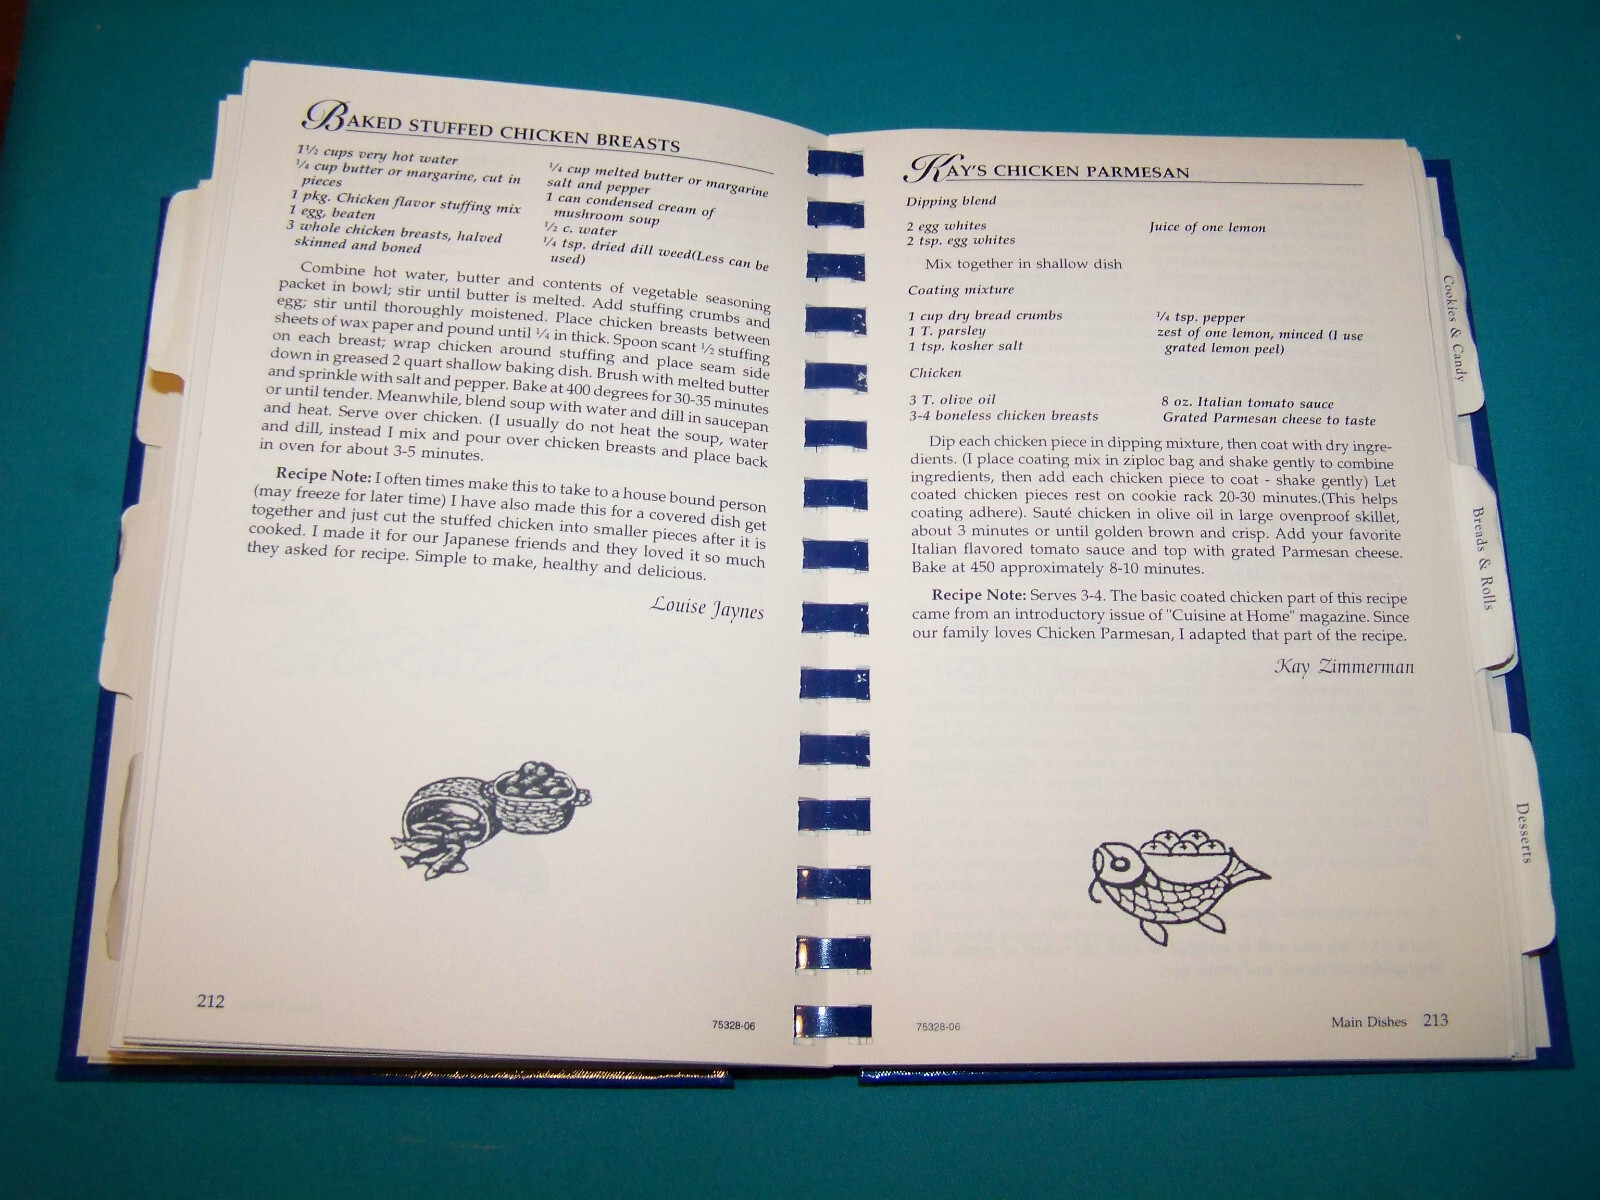 BAKED STUFFED CHICKEN BREASTS
1½ cups very hot water
¼ cup butter or margarine, cut in
pieces
1 pkg. Chicken flavor stuffing mix
1 egg, beaten
3 whole chicken breasts, halved
skinned and boned
¼ cup melted butter or margarine
salt and pepper
1 can condensed cream of
mushroom soup
½ c. water
¼ tsp. dried dill weed(Less can be
used)
Combine hot water, butter and contents of vegetable seasoning
packet in bowl; stir until butter is melted. Add stuffing crumbs and
egg; stir until thoroughly moistened. Place chicken breasts between
sheets of wax paper and pound until ¼ in thick. Spoon scant ½ stuffing
on each breast; wrap chicken around stuffing and place seam side
down in greased 2 quart shallow baking dish. Brush with melted butter
and sprinkle with salt and pepper. Bake at 400 degrees for 30-35 minutes
or until tender. Meanwhile, blend soup with water and dill in saucepan
and heat. Serve over chicken. (I usually do not heat the soup, water
and dill, instead I mix and pour over chicken breasts and place back
in oven for about 3-5 minutes.
Recipe Note: I often times make this to take to a house bound person
(may freeze for later time) I have also made this for a covered dish get
together and just cut the stuffed chicken into smaller pieces after it is
cooked. I made it for our Japanese friends and they loved it so much
they asked for recipe. Simple to make, healthy and delicious.
Louise Jaynes
212
75328-06
KAY'S CHICKEN PARMESAN
Dipping blend
2 egg whites
2 tsp. egg whites
Juice of one lemon
Mix together in shallow dish
Coating mixture
1 cup dry bread crumbs
1 T. parsley
1 tsp. kosher salt
¼ tsp. pepper
zest of one lemon, minced (I use
grated lemon peel)
Chicken
3 T. olive oil
3-4 boneless chicken breasts
8 oz. Italian tomato sauce
Grated Parmesan cheese to taste
Dip each chicken piece in dipping mixture, then coat with dry ingre-
dients. (I place coating mix in ziploc bag and shake gently to combine
ingredients, then add each chicken piece to coat - shake gently) Let
coated chicken pieces rest on cookie rack 20-30 minutes.(This helps
coating adhere). Sauté chicken in olive oil in large ovenproof skillet,
about 3 minutes or until golden brown and crisp. Add your favorite
Italian flavored tomato sauce and top with grated Parmesan cheese.
Bake at 450 approximately 8-10 minutes.
Recipe Note: Serves 3-4. The basic coated chicken part of this recipe
came from an introductory issue of "Cuisine at Home" magazine. Since
our family loves Chicken Parmesan, I adapted that part of the recipe.
Kay Zimmerman
75328-06
Main Dishes 213
Cookies & Candy
Breads & Rolls
Desserts